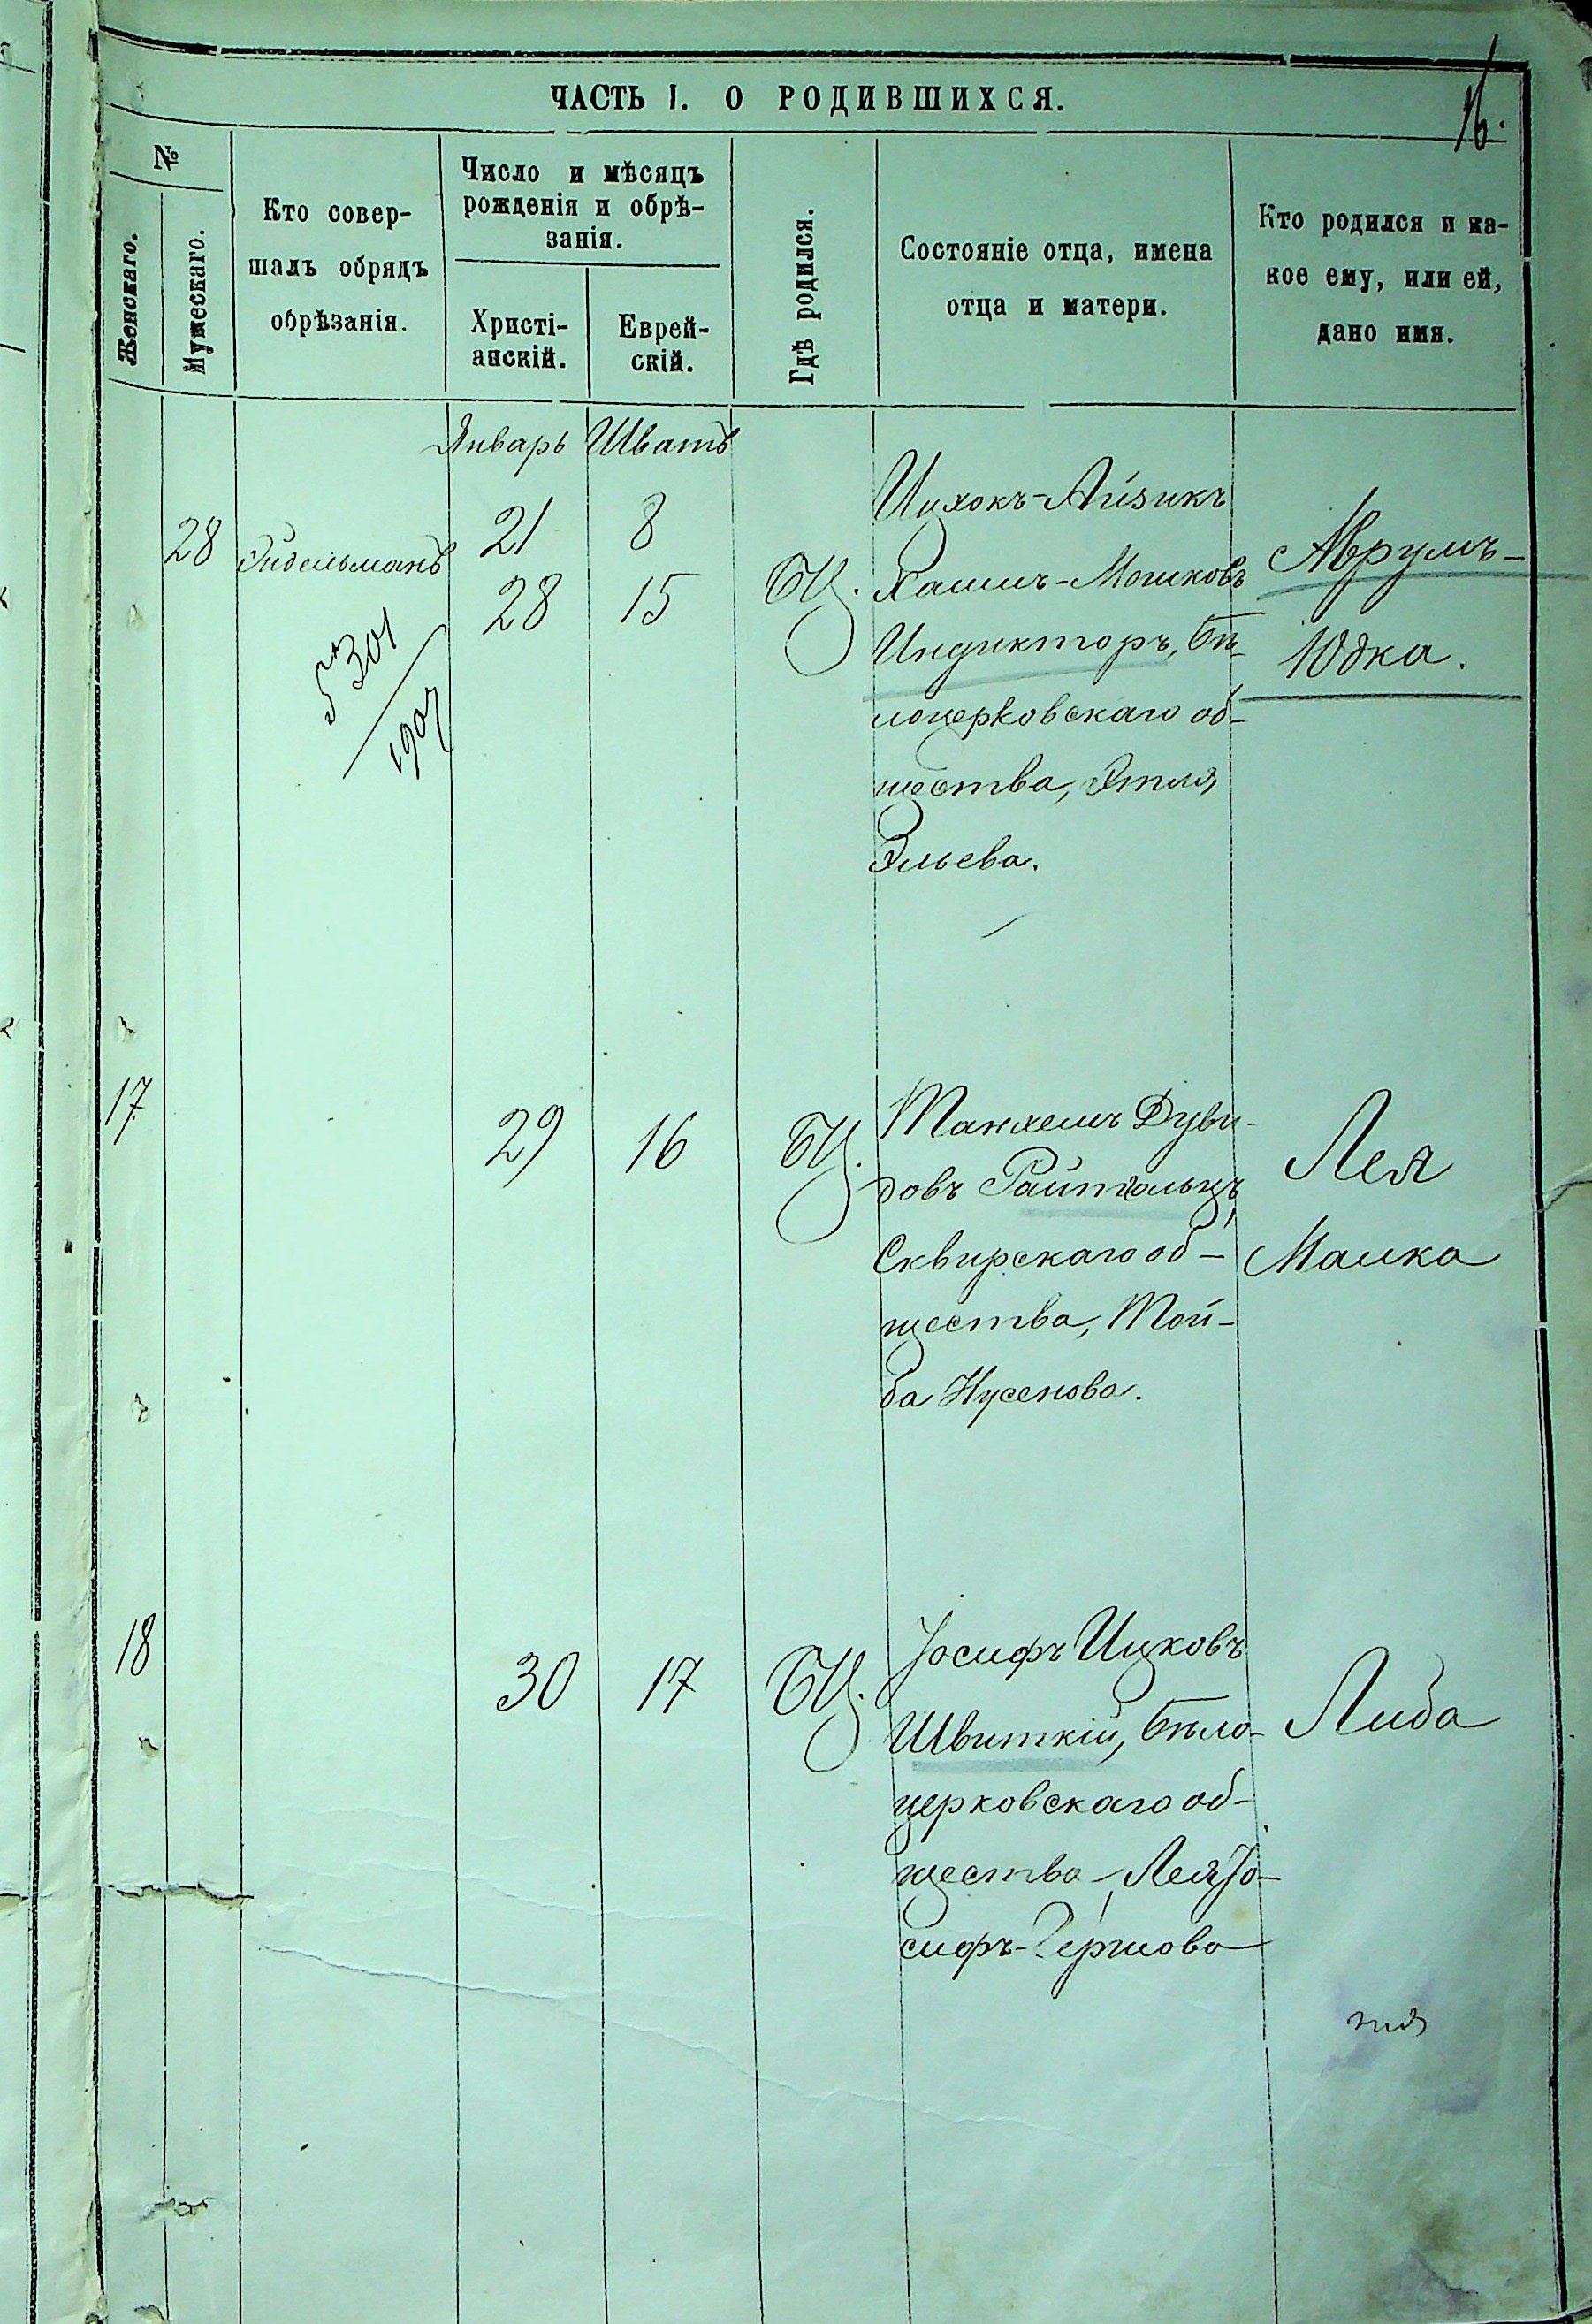 ЧАСТЬ I. О РОДИВШИХСЯ.
16.
№
Женскаго.
Мужескаго.
Кто совер-
шалъ обрядъ
обрѣзанія.
Число и мѣсяцъ
рожденія и обрѣ-
занія.
Христі-
анскій.
Еврей-
скій.
Гдѣ родился.
Состояніе отца, имена
отца и матери.
Кто родился и ка-
кое ему, или ей,
дано имя.
Январь Шватъ
28 Эйдельманъ
21 8
28 15
БЦ.
Ицхокъ-Айзикъ
Хаимъ-Мошковъ
Индикторъ, Бѣ-
лоцерковскаго об-
щества, Этля
Эльева.
Аврумъ-
Юдка.
301
1907
17
29 16 БЦ.
Танхелъ Дуви-
довъ Райтгольцъ,
Сквирскаго об-
щества, Той-
ба Нусенова.
Лея
Малка
18
30 17 БЦ.
Іосифъ Ицковъ
Швиткій, Бѣло-
церковскаго об-
щества, Лея Іо-
сифъ-Гершова
Либа